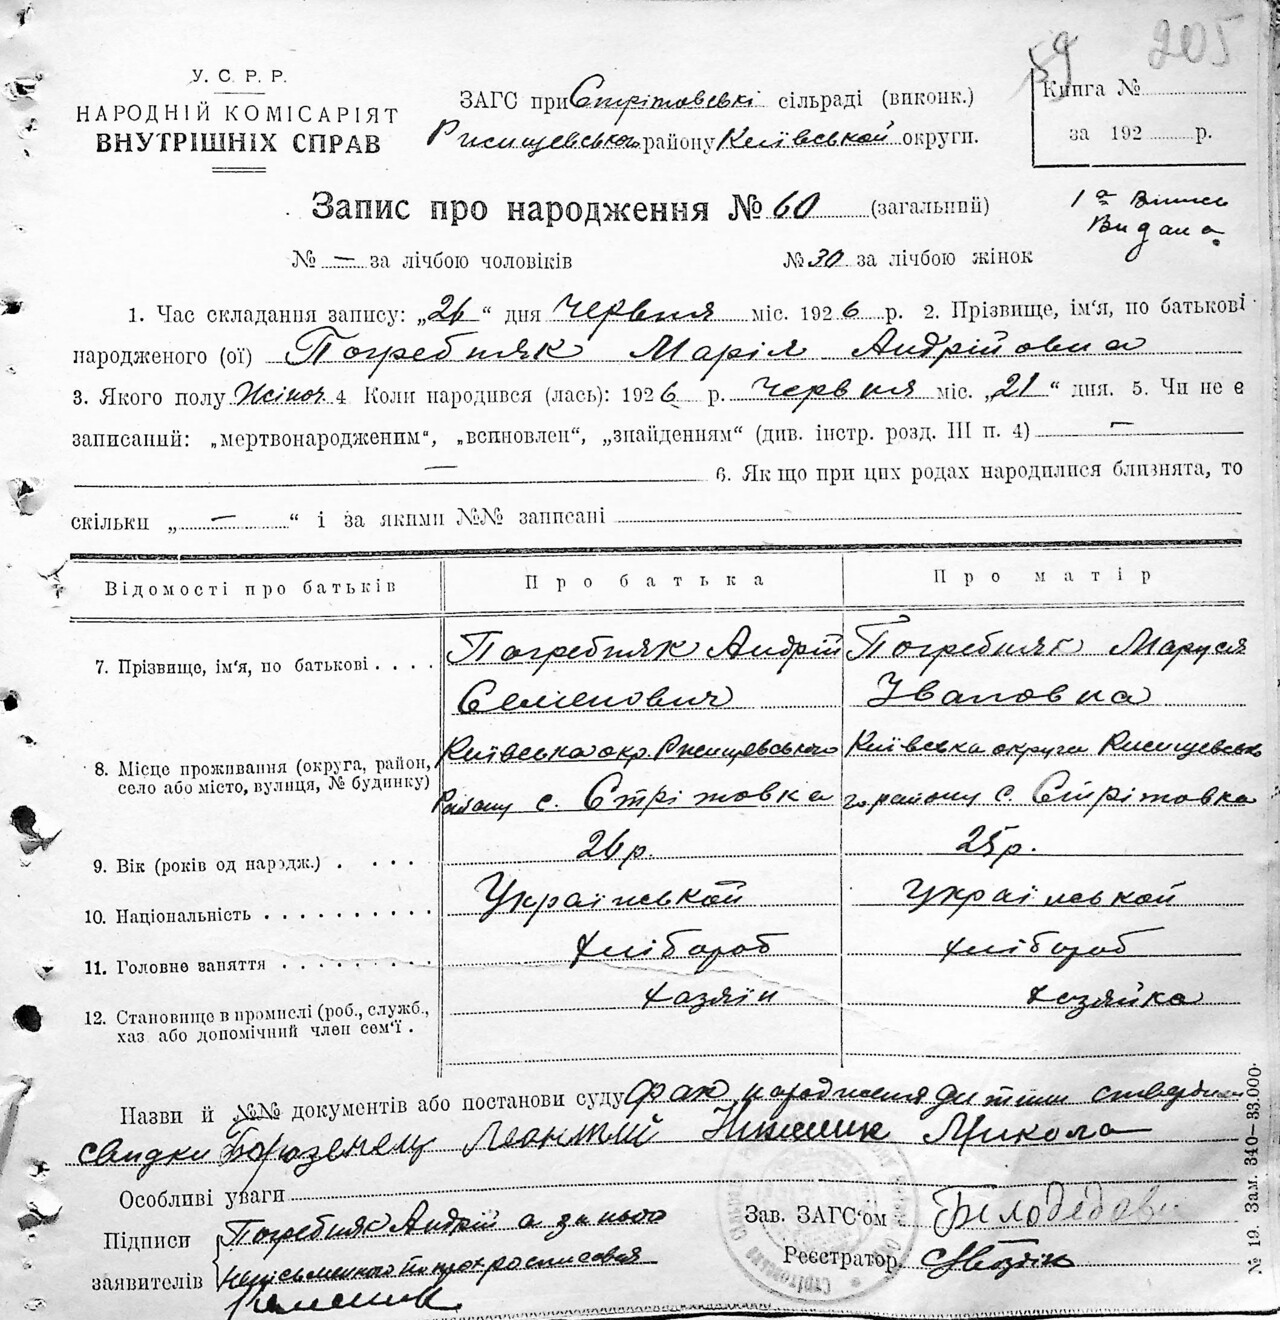 59 205
У. С. Р. Р.
НАРОДНІЙ КОМІСАРІЯТ
ВНУТРІШНІХ СПРАВ
ЗАГС при Стрітовські сільраді (виконк.)
Ржищевського району Київської округи.
Книга №
за 192 р.
Запис про народження № 60 (загальний)
1а
Видана.
№ — за лічбою чоловіків № 30 за лічбою жінок
1. Час складання запису: „26“ дня Червня міс. 1926 р. 2. Прізвище, ім'я, по батькові
народженого (ої) Погребняк Марія Андрійовна
3. Якого полу Жіноч 4 Коли народився (лась): 1926 р. Червня міс. „21“ дня. 5. Чи не є
записаний: „мертвонародженим“, „всиновлен“, „знайденням“ (див. інстр. розд. III п. 4) —
— 6. Як що при цих родах народилися близнята, то
скільки „—“ і за якими №№ записані
Відомості про батьків Про батька Про матір
7. Прізвище, ім'я, по батькові . . . . Погребняк Андрій Погребняк Маруся
Семенович Івановна
8. Місце проживання (округа, район, Київська окр. Ржищевського Київська округи Ржищевсь
село або місто, вулиця, № будинку) Району с. Стрітовка го району с. Стрітовка
9. Вік (років од народж.) . . . . 26 р. 25 р.
10. Національність . . . . . . . . . . Українськой Українськой
11. Головне заняття . . . . . . . . . Хлібороб Хлібороб
12. Становище в промислі (роб., служб., Хазяїн Хазяйка
хаз або допомічний член сем'ї .
Назви й №№ документів або постанови суду Фак народження дитини
свидки Леонтій Микола
Особливі уваги
Підписи Погребняк Андрій а за нього
заявителів неписьменного росписався
Зав. ЗАГС'ом
Реєстратор
№ 19. Зам. 340—33.000.